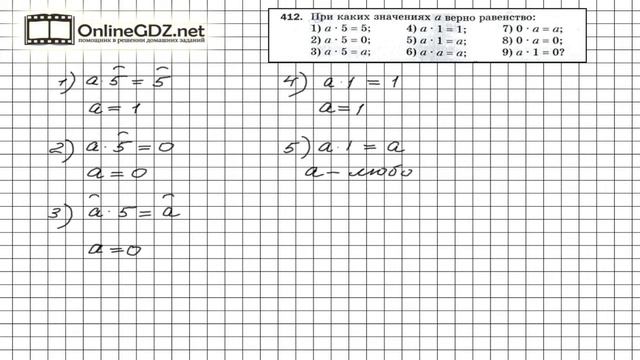 OnlineGDZ.net
помощник в решении домашних заданий
412. При каких значениях a верно равенство:
1) a · 5 = 5; 4) a · 1 = 1; 7) 0 · a = a;
2) a · 5 = 0; 5) a · 1 = a; 8) 0 · a = 0;
3) a · 5 = a; 6) a · a = a; 9) a · 1 = 0?
1) a · 5 = 5
a = 1
2) a · 5 = 0
a = 0
3) a · 5 = a
a = 0
4) a · 1 = 1
a = 1
5) a · 1 = a
a – любо